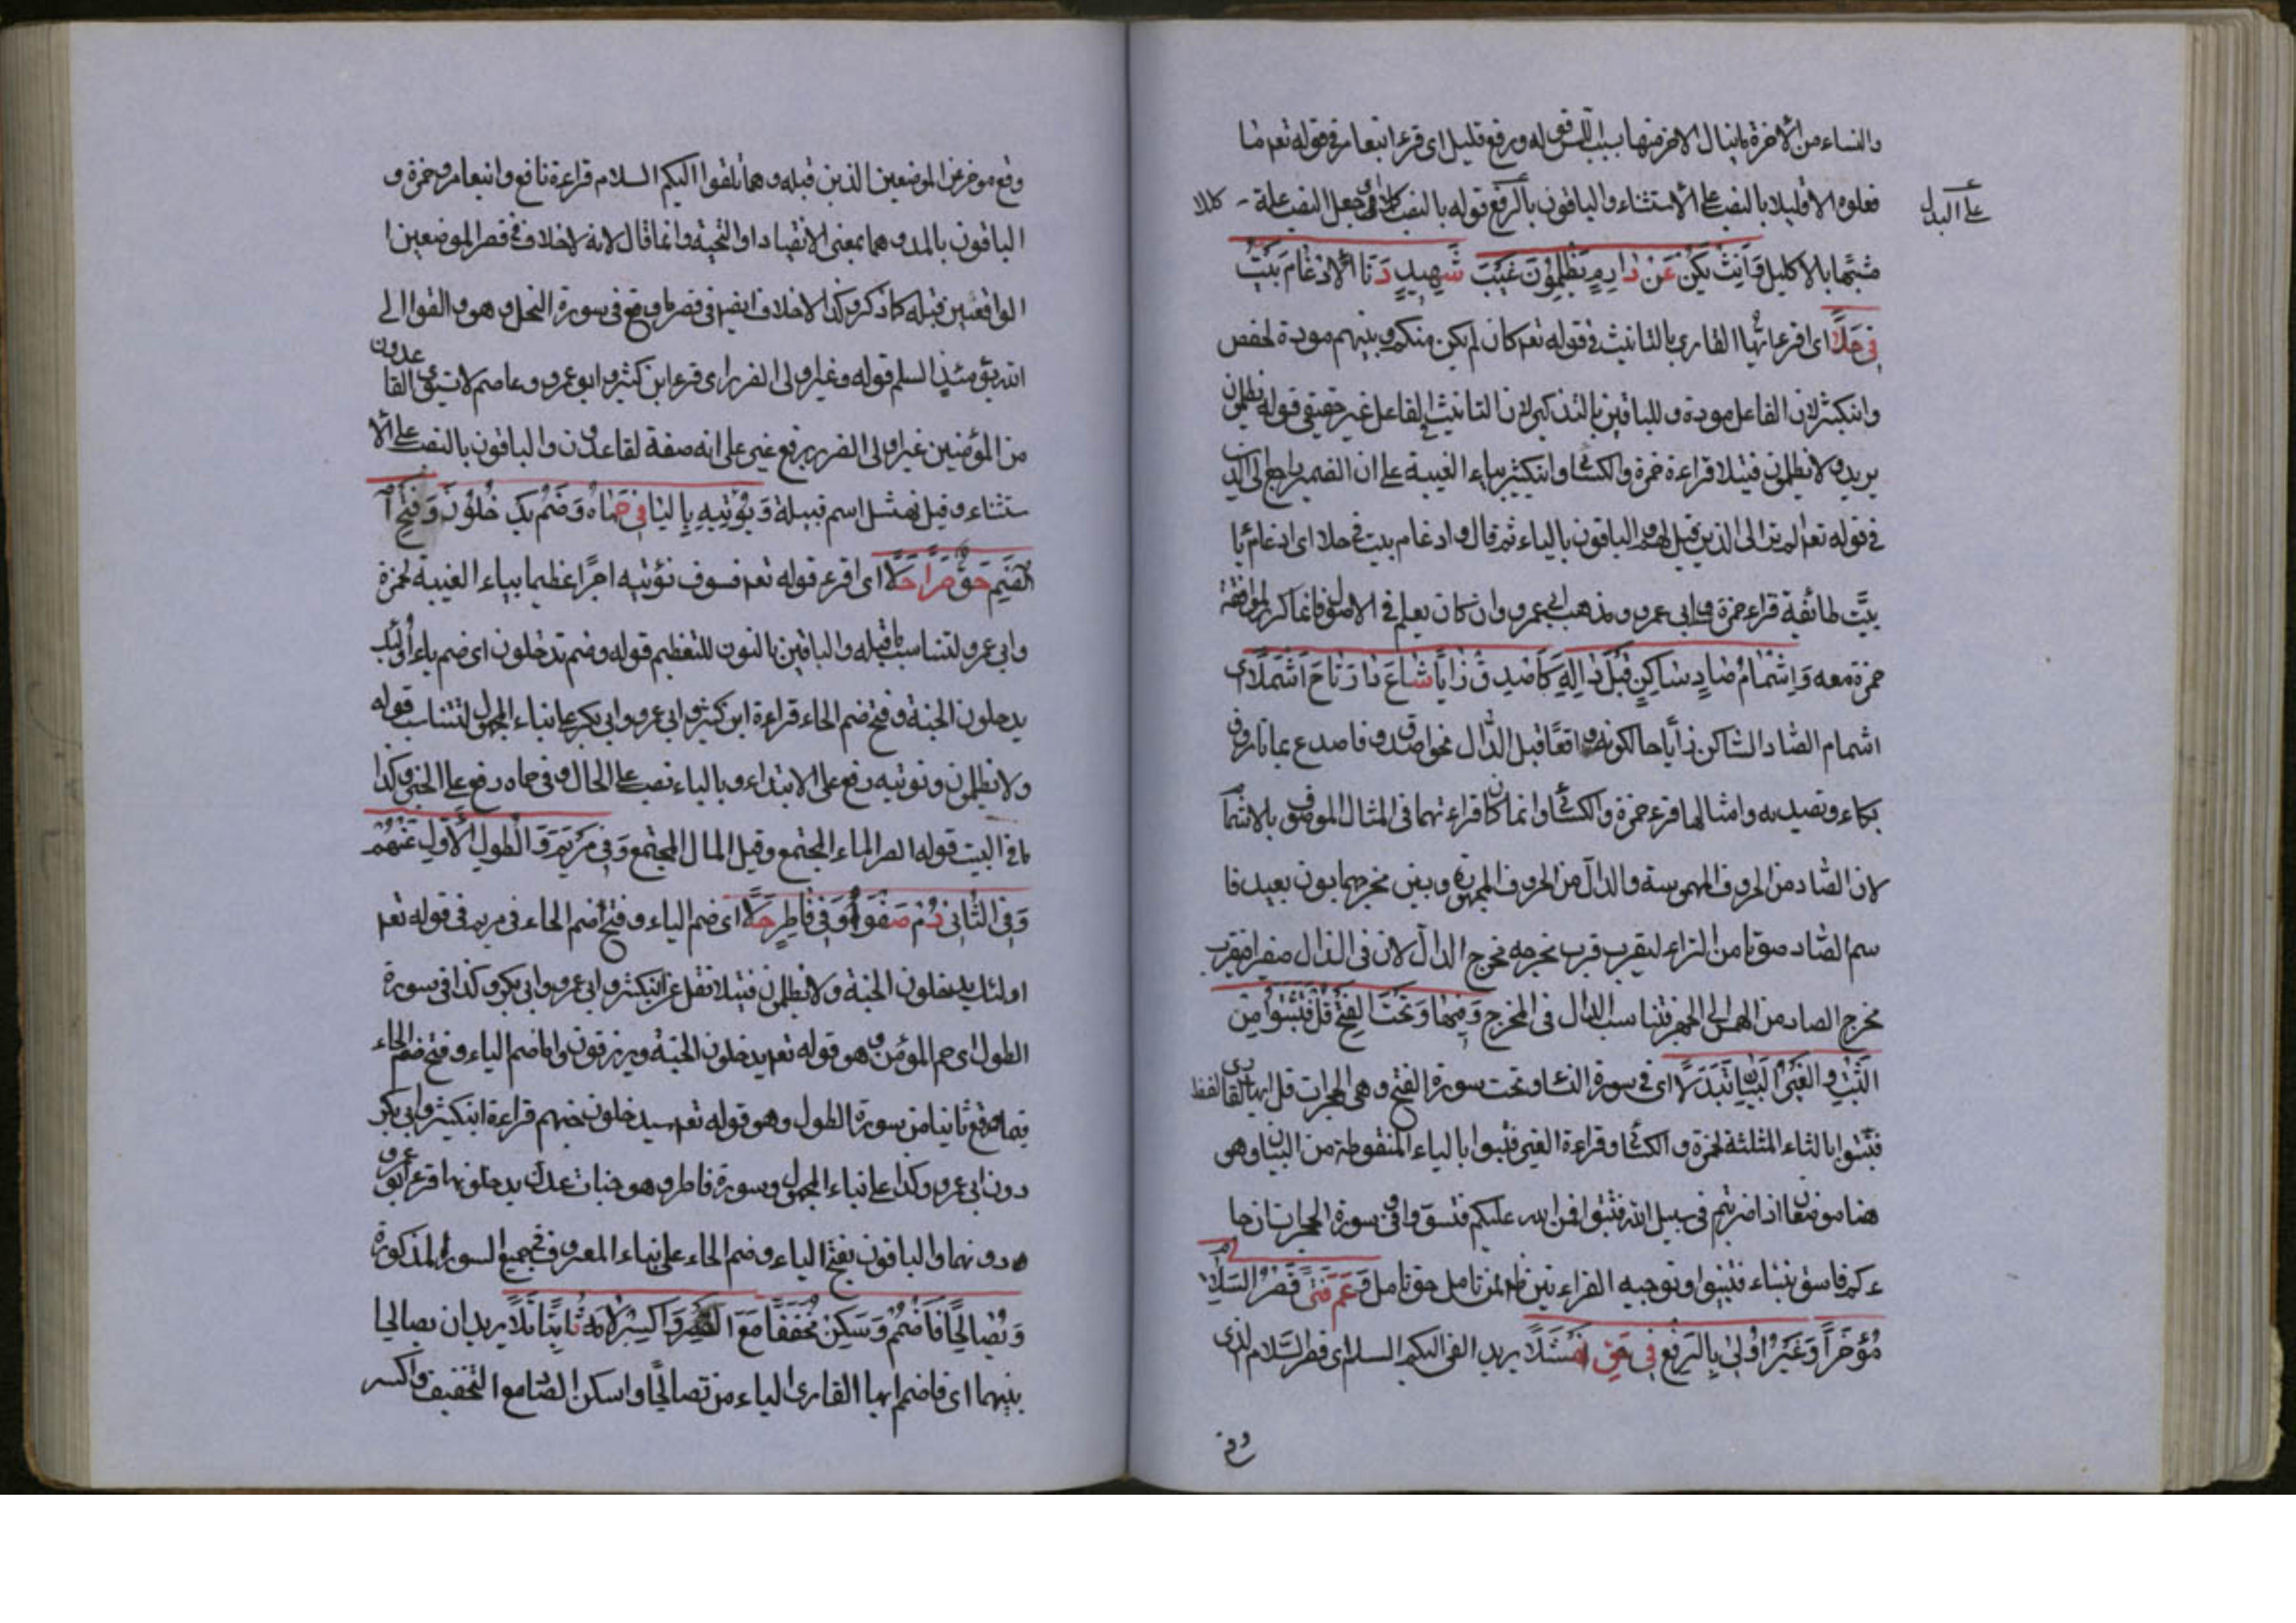 والنساء من الاخرة ورفع قليل اى قرء ابنعامر فى قوله تعم ما
فعلوه الا قليلا بالنصب على الاستثناء والباقون بالرفع قوله بالنصب كللا اى جعل النصب علة كللا
على البدل
مشبها بالاكليل وَاَنِّثْ يَكُنْ عَنْ دَارِمٍ يُظْلَمُوْنَ غَيْبَ شَهِيدٍ دَنَا اْلاِدْغَامُ بَيَّتَ
فِى حَلَا اى اقرء ايها القارى بالتانيث فى قوله تعم كان لم يكن بينكم وبينهم مودة لحفص
وابنكثير لان الفاعل مودة وللباقين بالتذكير لان التانيث الفاعل غير حقيقى قوله يظلمون
يريد ولا يظلمون فتيلا قراءة حمزة والكسائى وابنكثير بياء الغيبة على ان الضمير راجع الى الذين
فى قوله تعم الم تر الى الذين قيل لهم والباقون بالياء ثم قال وادغام بيت فى حلا اى ادغام تا
بيَّت طائفة قراء حمزة وابى عمرو ومذهب ابيعمرو وان كان يعلم فى الاصول وانما كرر لموافقة
حمزة معه وَاِشْمَامُ صَادٍ سَاكِنٍ قَبْلَ دَالِهِ كَاَصْدَقُ زَايًا شَاعَ وَارْتَاحَ اَشْمُلَا اى
اشمام الصاد الساكن زايا حالكونه واقعًا قبل الدال نحو اصدق وفاصدع بما تؤمر
مكاء وتصدية وامثالها قرء حمزة والكسائى وانما كان قراءتهما فى المثال الموصوف بالاشمام
لان الصاد من الحروف المهموسة والدال من الحروف المجهورة وبين مخرجهما بون بعيد فا
سم الصاد صوتا من الزاء ليقرب قرب مخرجه مخرج الدال لان فى الدال فقرب
مخرج الصاد من الهمس الى الجهر لتناسب الدال فى المخرج وَفِيهَا وَتَحْتَ الْفَتْحِ قُلْ فَتَثَبَّتُوْا مِنَ
الثَّبْتِ وَالْغَيْرُ الْبَيَانَ تَبَدَّلَا اى فى سورة النساء وتحت سورة الفتح وهى الحجرات قل ايها القارى لفظ
فتثبتوا بالثاء المثلثة لحمزة والكسائى وقراءة الغير فتبينوا بالياء المنقوطة من البيان وهى
هنا موضعان اذا ضربتم فى سبيل الله فتثبتوا فمن الله عليكم فتبينوا وفى سورة الحجرات ان جا
ءكم فاسق بنباء فتبينوا وتوجيه القراءتين ظاهر لمن تامل حق تامل وَعَمَّ فَتًى قَصْرُ السَّلَامَ
مُؤَخَّرًا وَغَيْرَ اُولِى بِالرَّفْعِ فِى حَقِّ نَهْشَلَا يريد القى اليكم السلام اى قصر السّلام الذى
وقع
وقع موخرا عن الموضعين الذين قبله وهما تلقوا اليكم السلام قراءة نافع وابنعامر وحمزة و
الباقون بالمد وهما بمعنى الانقياد او التحية وانما قال لانه لا خلاف فى قصر الموضعين ا
لواقعين قبله كما ذكر وكذا لا خلاف ايضا فى قصر ما وقع فى سورة النحل وهو والقوا الى
الله يومئذ السلم قوله وغير اولى الضرر اى قرء ابن كثير وابو عمرو وعاصم لا يستوى القاعدون
من المؤمنين غير اولى الضرر برفع غير على انه صفة لقاعدون والباقون بالنصب على الا
ستثناء وقيل نهشل اسم قبيلة وَيُؤْتِيهِ بِالْيَا فِى حِمَاهُ وَضَمُّ يَدْخُلُوْنَ وَفَتْحُ
الضَّمِّ حَقٌّ صِرًا حَلَا اى اقرء قوله تعم فسوف نؤتيه اجرًا عظيما بياء الغيبة لحمزة
وابى عمرو لتناسب ما قبله والباقين بالنون للتعظيم قوله وضم يدخلون اى ضم ياء اولئك
يدخلون الجنة وفتح ضم الخاء قراءة ابن كثير وابى عمرو وابى بكر على بناء المجهول لتناسب قوله
ولا يظلمون ونوتيه رفع على الابتداء وبالياء نصب على الحال وفى حماه رفع على الخبر وكذا
ما فى البيت قوله الصرا الماء المجتمع وقيل المال المجتمع وَفِى مَرْيَمَ وَالطَّوْلِ الْاَوَّلُ عَنْهُمُ
وَفِى الثَّانِى دُمْ صَفْوًا وَفِى فَاطِرٍ حَلَا اى ضم الياء وفتح ضم الخاء فى مريم فى قوله تعم
اولئك يدخلون الجنة ولا يظلمون فتيلا نقل عن ابنكثير وابى عمرو وابى بكر وكذا فى سورة
الطول اى حم المؤمن وهو قوله تعم يدخلون الجنة ويرزقون واما ضم الياء وفتح ضم الخاء
فيما وقع ثانيا من سورة الطول وهو قوله تعم سيدخلون جهنم قراءة ابنكثير وابى بكر
دون ابى عمرو وكذا على بناء المجهول وسورة فاطر وهو جنات عدن يدخلونها قرء ابو عمرو
دونهما والباقون بفتح الياء وضم الخاء على بناء المعروف فى جميع السور المذكورة
وَيَصَّالَحَا فَاضْمُمْ وَسَكِّنْ مُخَفِّفًا مَعَ الْقَصْرِ وَاكْسِرْ لَامَهُ ثَابِتًا تَلَا يريد ان يصالحا
بينهما اى فاضمم ايها القارى الياء من تصالحا واسكن الصاد مع التخفيف واكسر